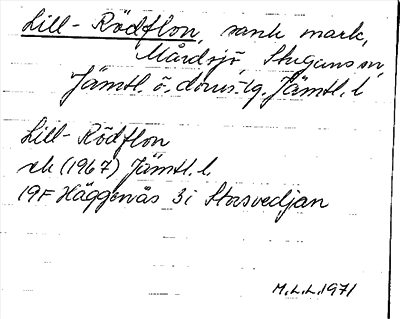 Lill-Rödflon, sank mark,
Mårdsjö, Stuguns sn,
Jämtl. ö. doms. tg. Jämtl. l.
Lill-Rödflon
ek (1967) Jämtl. l.
19F Häggenås 3i Storsvedjan
M.L.L. 1971